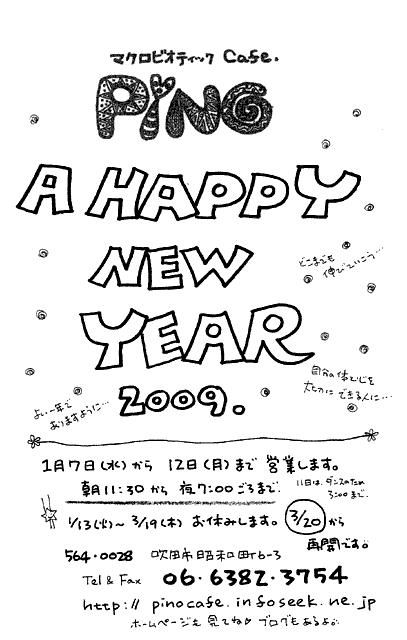 マクロビオティック Cafe.
PiNG
A HAPPY
NEW
YEAR
2009.
どこまでも
伸びていこう…
自分の体と心を
大切に できる人に…
よい一年で
ありますように…
1月7日(水)から 12日(月)まで 営業します。
朝11:30 から 夜7:00ごろまで.
11日は、ダンスのため
3:00まで.
1/13(火)~ 3/19(木) お休みします。 3/20から
再開です。
564-0028 吹田市昭和町6-3
Tel & Fax 06-6382-3754
http:// pinocafe.infoseek.ne.jp
ホームページも 見てね♪ ブログもあるよ